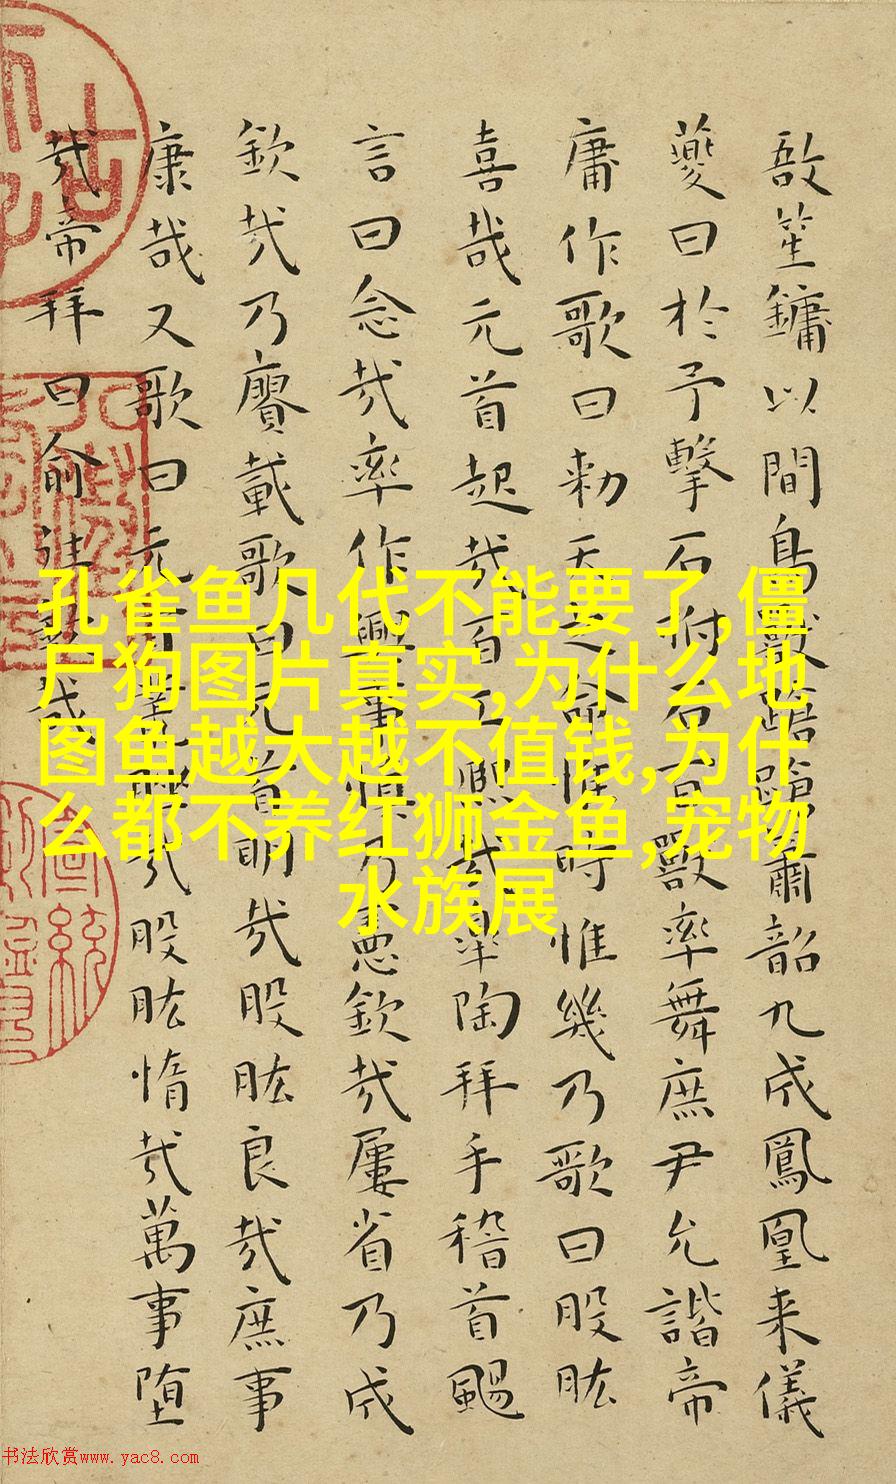 敔笙鏞以間鳥獸蹌蹌簫韶九成鳳凰来儀
夔曰於予擊石拊石百獸率舞庶尹允諧帝
庸作歌曰勑天之命惟時惟幾乃歌曰股肱
喜哉元首起哉百工熙哉皋陶拜手稽首颺
言曰念哉率作興事慎乃憲欽哉屢省乃成
欽哉乃賡載歌曰元首明哉股肱良哉庶事
康哉又歌曰元首叢脞哉股肱惰哉萬事堕
哉帝拜曰俞往欽哉
孔雀鱼几代不能要了,僵
尸狗图片真实,为什么地
图鱼越大越不值钱,为什
么都不养红狮金鱼,宠物
水族展
书法欣赏www.yac8.com